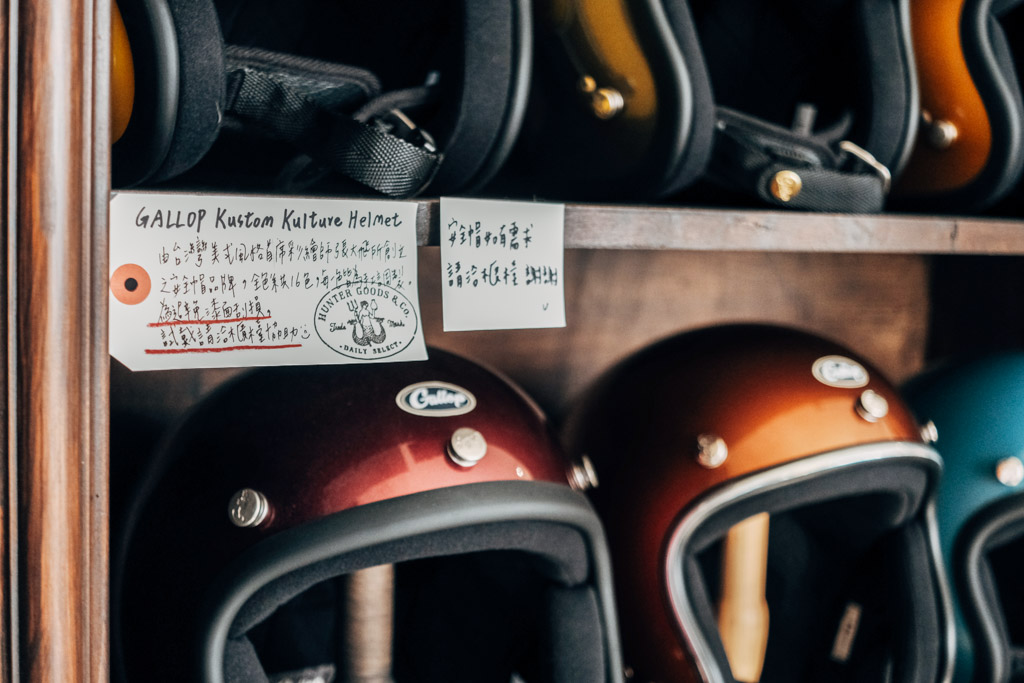 GALLOP Kustom Kulture Helmet
由台灣美式風格首席彩繪師張大飛所創立
之安全帽品牌，全色系16色，每一色皆為
為避免漆面刮損。
試戴請洽櫃檯協助
HUNTER GOODS & CO.
Trade Marks
·DAILY SELECT·
安全帽如有需求
請洽櫃檯 謝謝
Gallop
Gallop